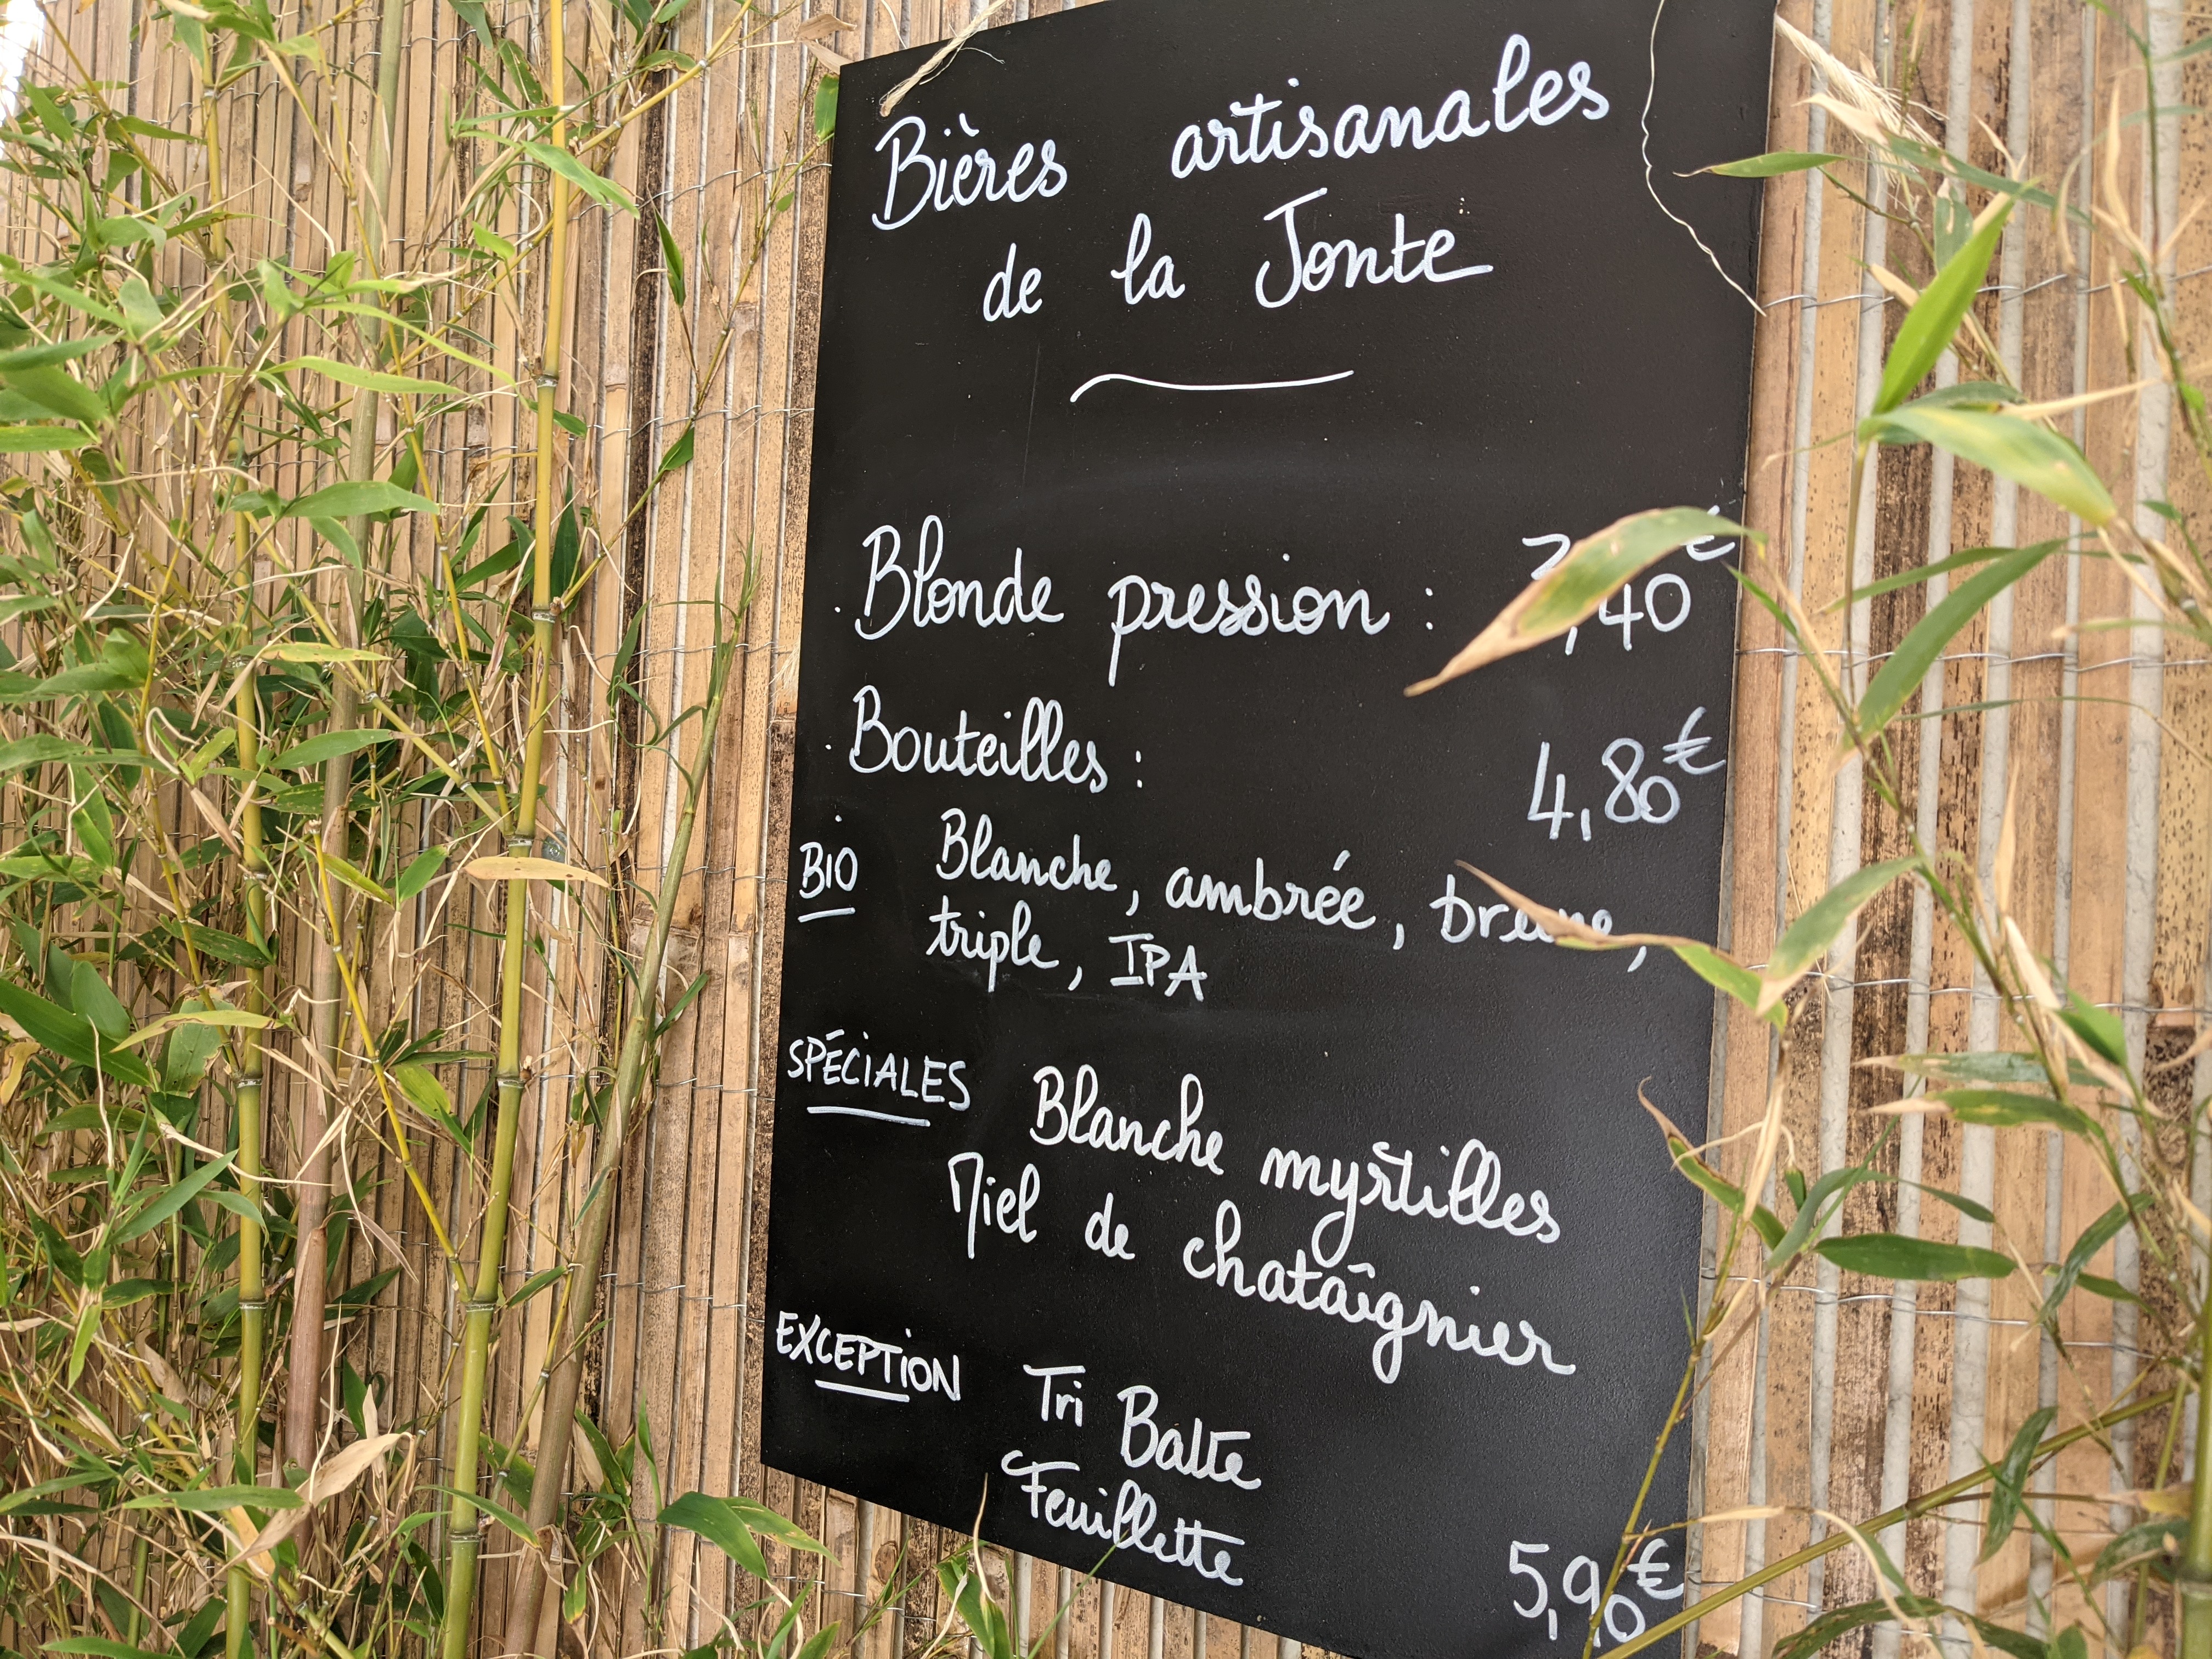 Bières artisanales
de la Jonte
. Blonde pression : 3,40€
. Bouteilles : 4,80€
BIO Blanche, ambrée, brune,
triple, IPA
SPÉCIALES Blanche myrtilles
Miel de chataîgnier
EXCEPTION Tri Balte
Feuillette
5,90€